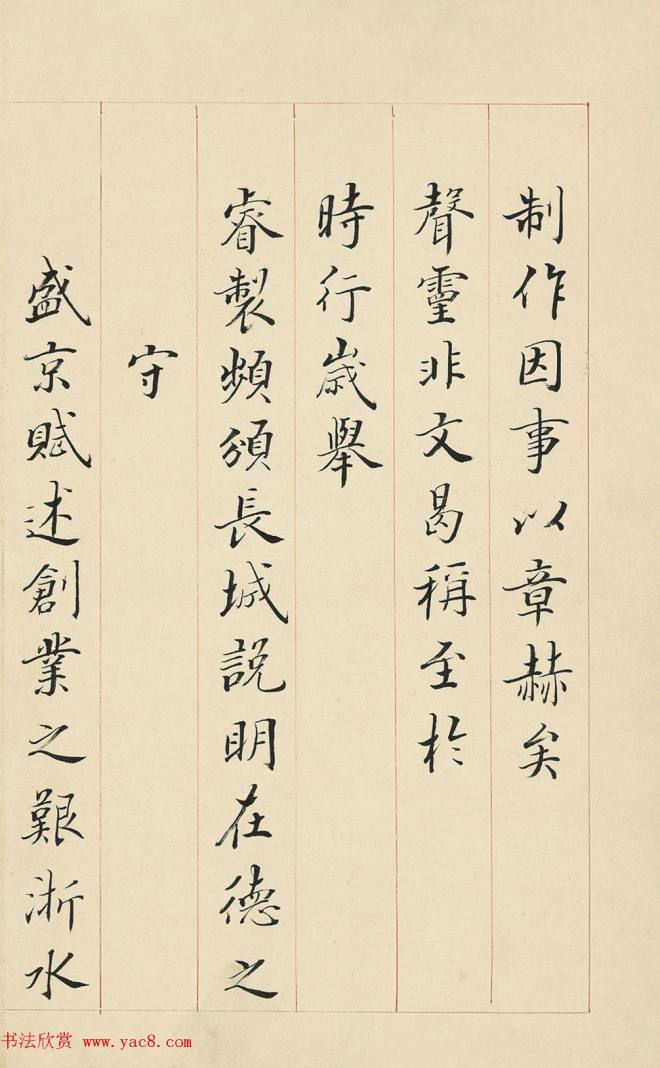 制作因事以章赫矣
聲靈非文曷稱至於
時行歲舉
睿製頻頒長城說明在德之
守
盛京賦述創業之艱淅水
书法欣赏 www.yac8.com